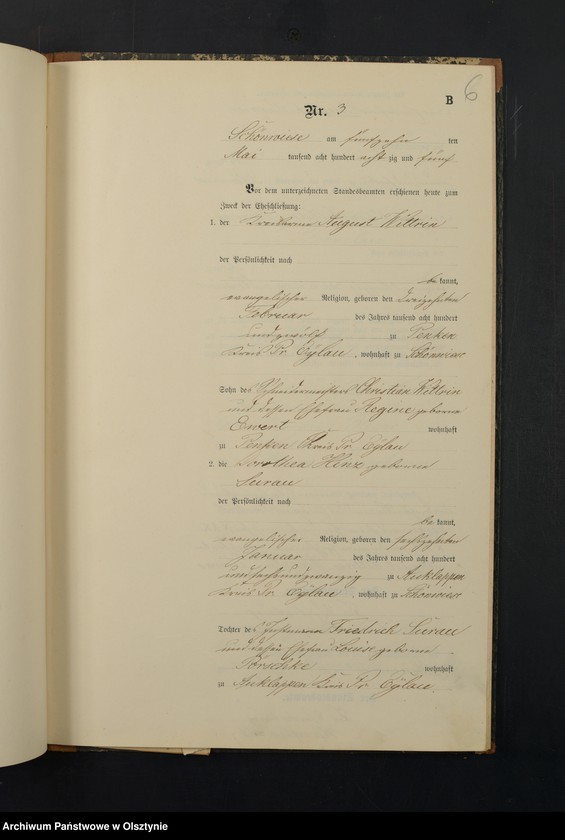 B
6
Nr. 3
Schönwiese am fünfzehn ten
Mai tausend acht hundert acht zig und fünf
Vor dem unterzeichneten Standesbeamten erschienen heute zum
Zweck der Eheschließung:
1. der August Wittrin
der Persönlichkeit nach
be kannt,
evangelischer Religion, geboren den dreizehnten
Februar des Jahres tausend acht hundert
und zwölf zu Penken
Kreis Pr. Eylau, wohnhaft zu Schönwiese
Sohn des Schneidermeisters Christian Wittrin
und dessen Ehefrau Regine geborene
Ewert wohnhaft
zu Penken Kreis Pr. Eylau
2. die Dorothea Hinz geborene
Surau
der Persönlichkeit nach
be kannt,
evangelischer Religion, geboren den sechszehnten
Januar des Jahres tausend acht hundert
und sechsundzwanzig zu Anklappen
Kreis Pr. Eylau, wohnhaft zu Schönwiese
Tochter des Instmann Friedrich Surau
und dessen Ehefrau Louise geborene
Pörschke wohnhaft
zu Anklappen Kreis Pr. Eylau
Archiwum Państwowe w Olsztynie